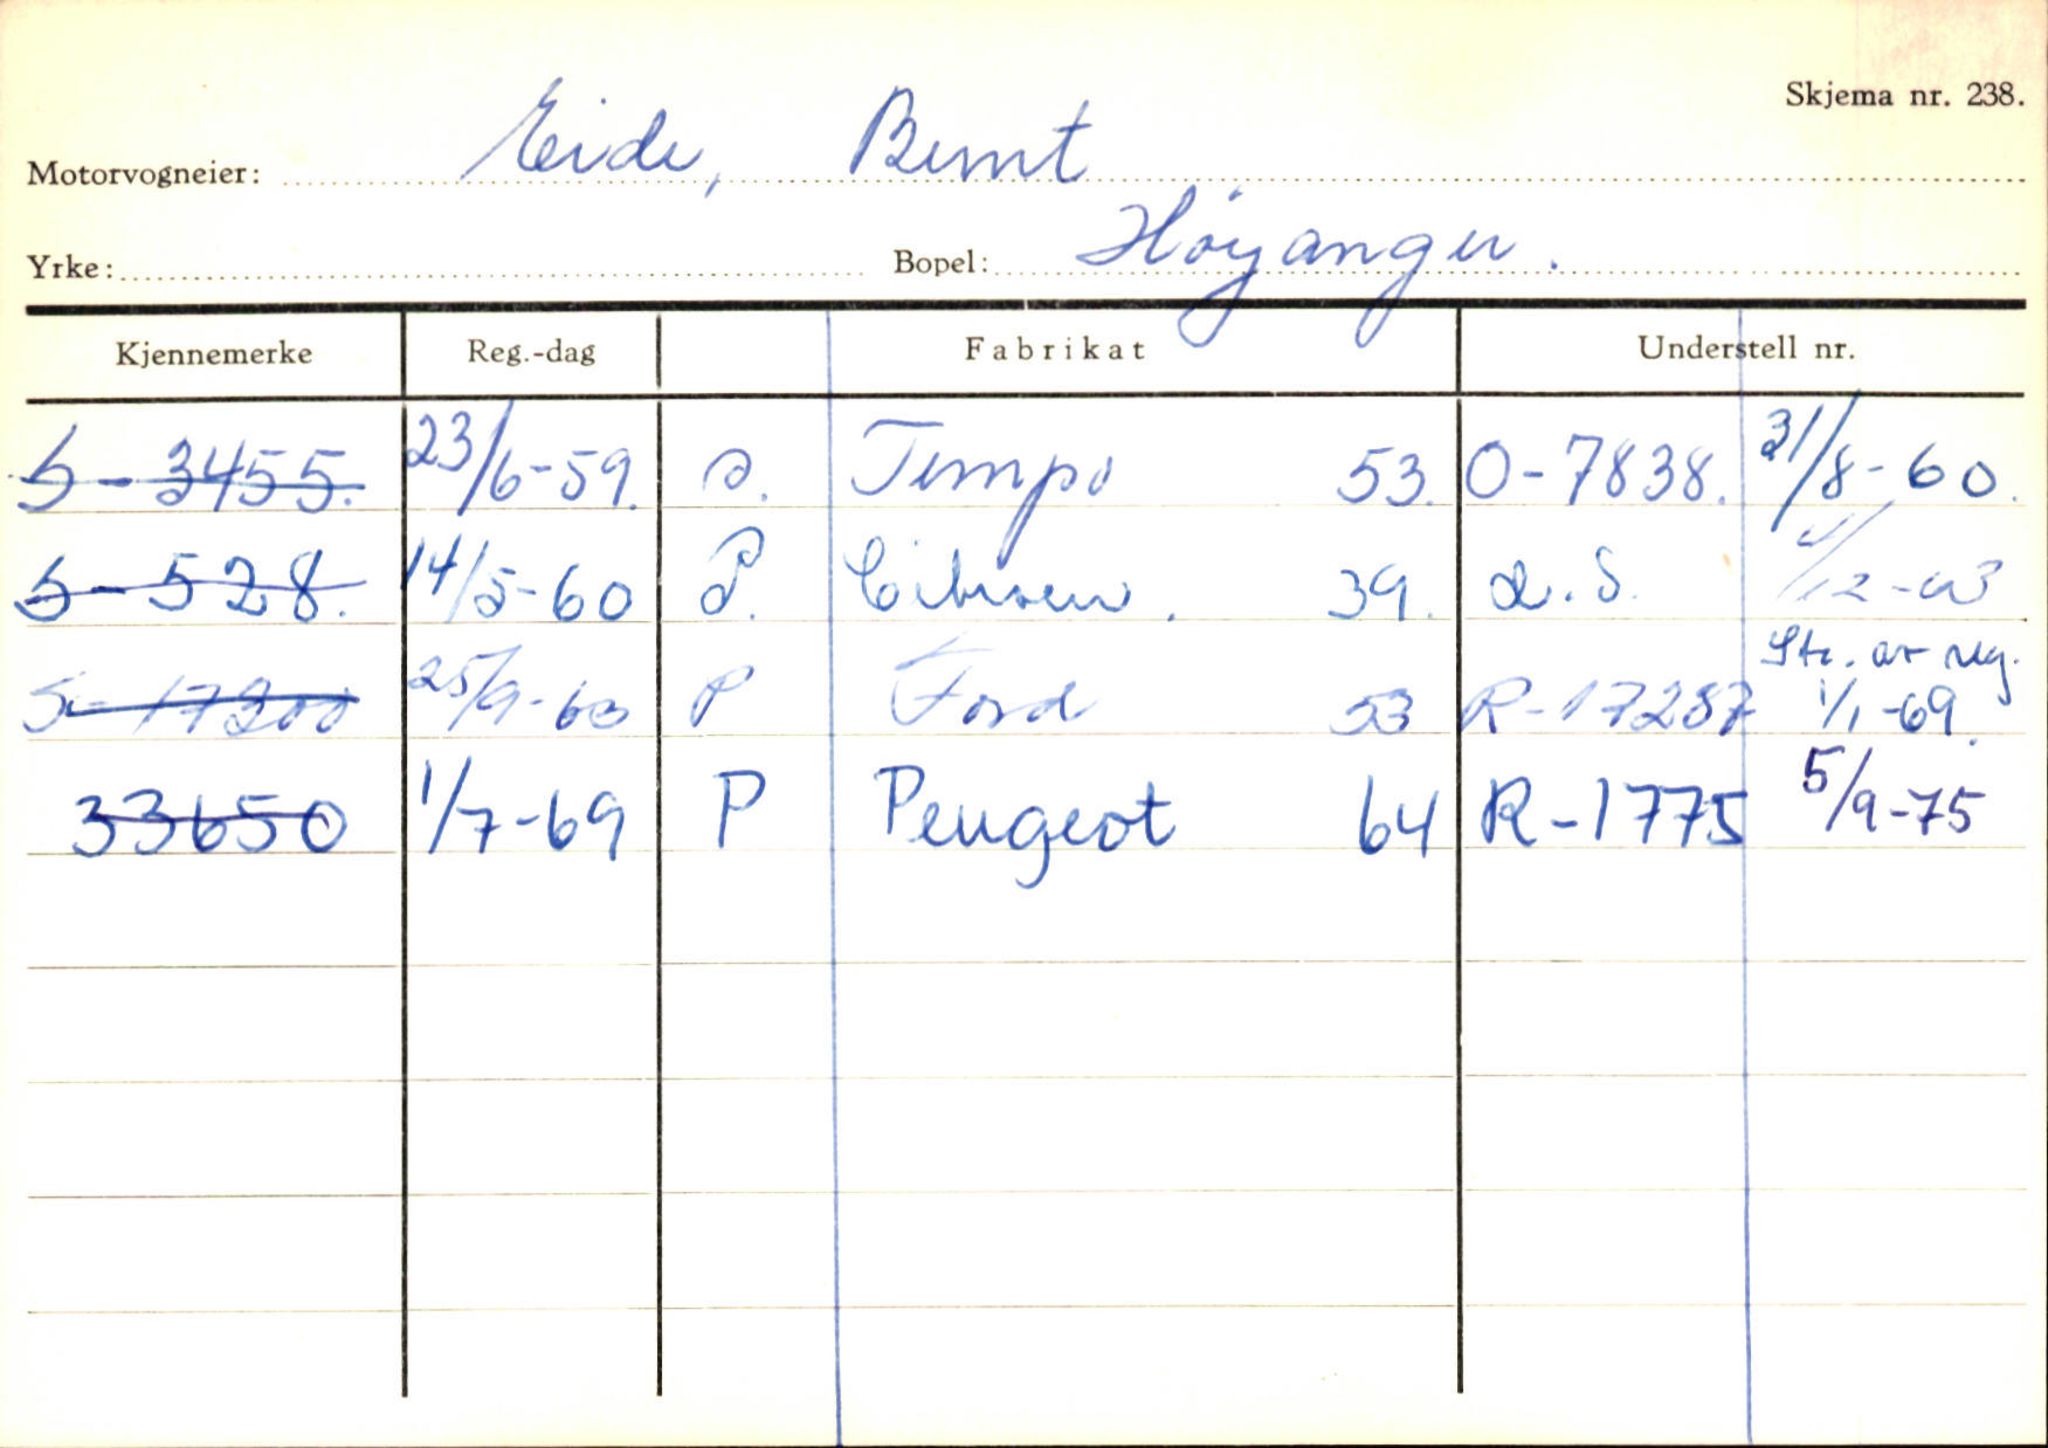 Skjema nr. 238.
Motorvogneier: Eide, Bernt
Yrke: Bopel: Høyanger.
Kjennemerke Reg.-dag Fabrikat Understell nr.
S-3455. 23/6-59. Tempo 53. O-7838. 31/8-60.
S-528. 14/5-60 P. Citroen. 39. 2/12-63
S-17200 25/9-63 P Ford 53 R-17287 Str. av reg. 1/1-69.
33650 1/7-69 P Peugeot 64 R-1775 5/9-75